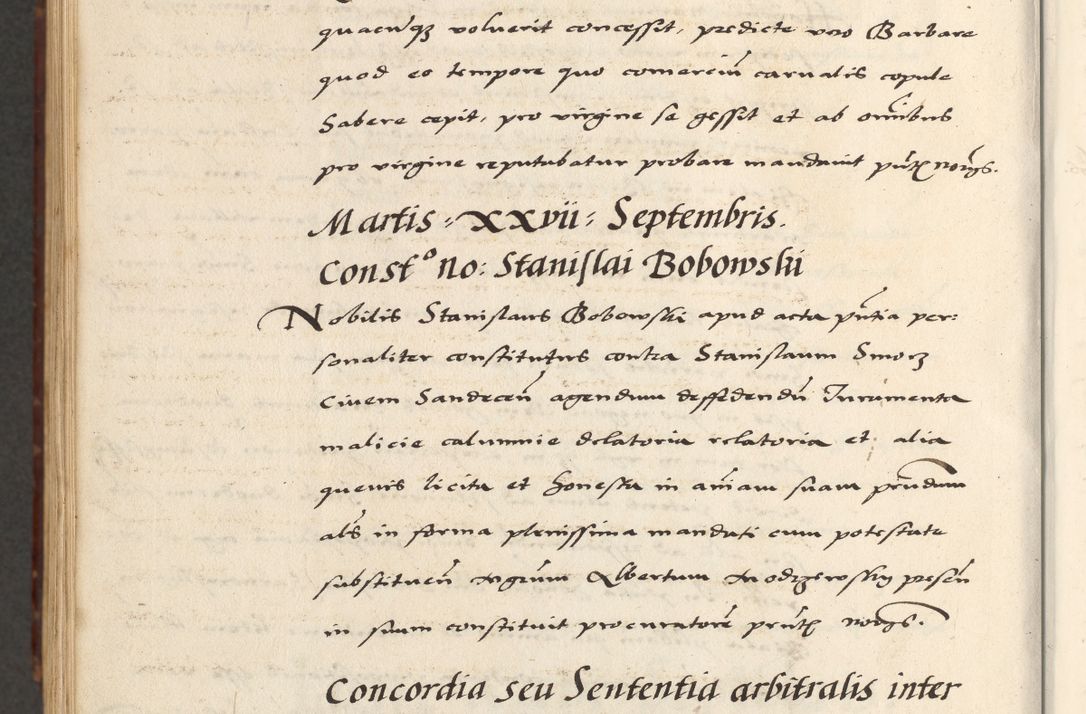 quacu̅qz voluerit concessit, predicte vero Barbare
quod eo tempore quo comerciu̅ carnalis copule
habere cepit, pro virgine se gessit et ab omnibus
pro virgine reputabatur probare mandavit
Martis : XXVII : Septembris.
Constº no: Stanislai Bobowski
Nobilis Stanislaus Bobowski apud acta pn̅tia per:
sonaliter constitutus contra Stanislaum Smorz
Civem Sandecen̅ agendum deffendendu̅ Iuramenta
malicie calumnie delatoria relatoria et alia
quevis licita et honesta in a̅i̅am suam
al̅s in forma plenissima mandati cum potestate
substituen̅ Mgr̅um Albertum Modrzewsky presen̅
in suum constituit procuratore̅
Concordia seu Sententia arbitralis inter